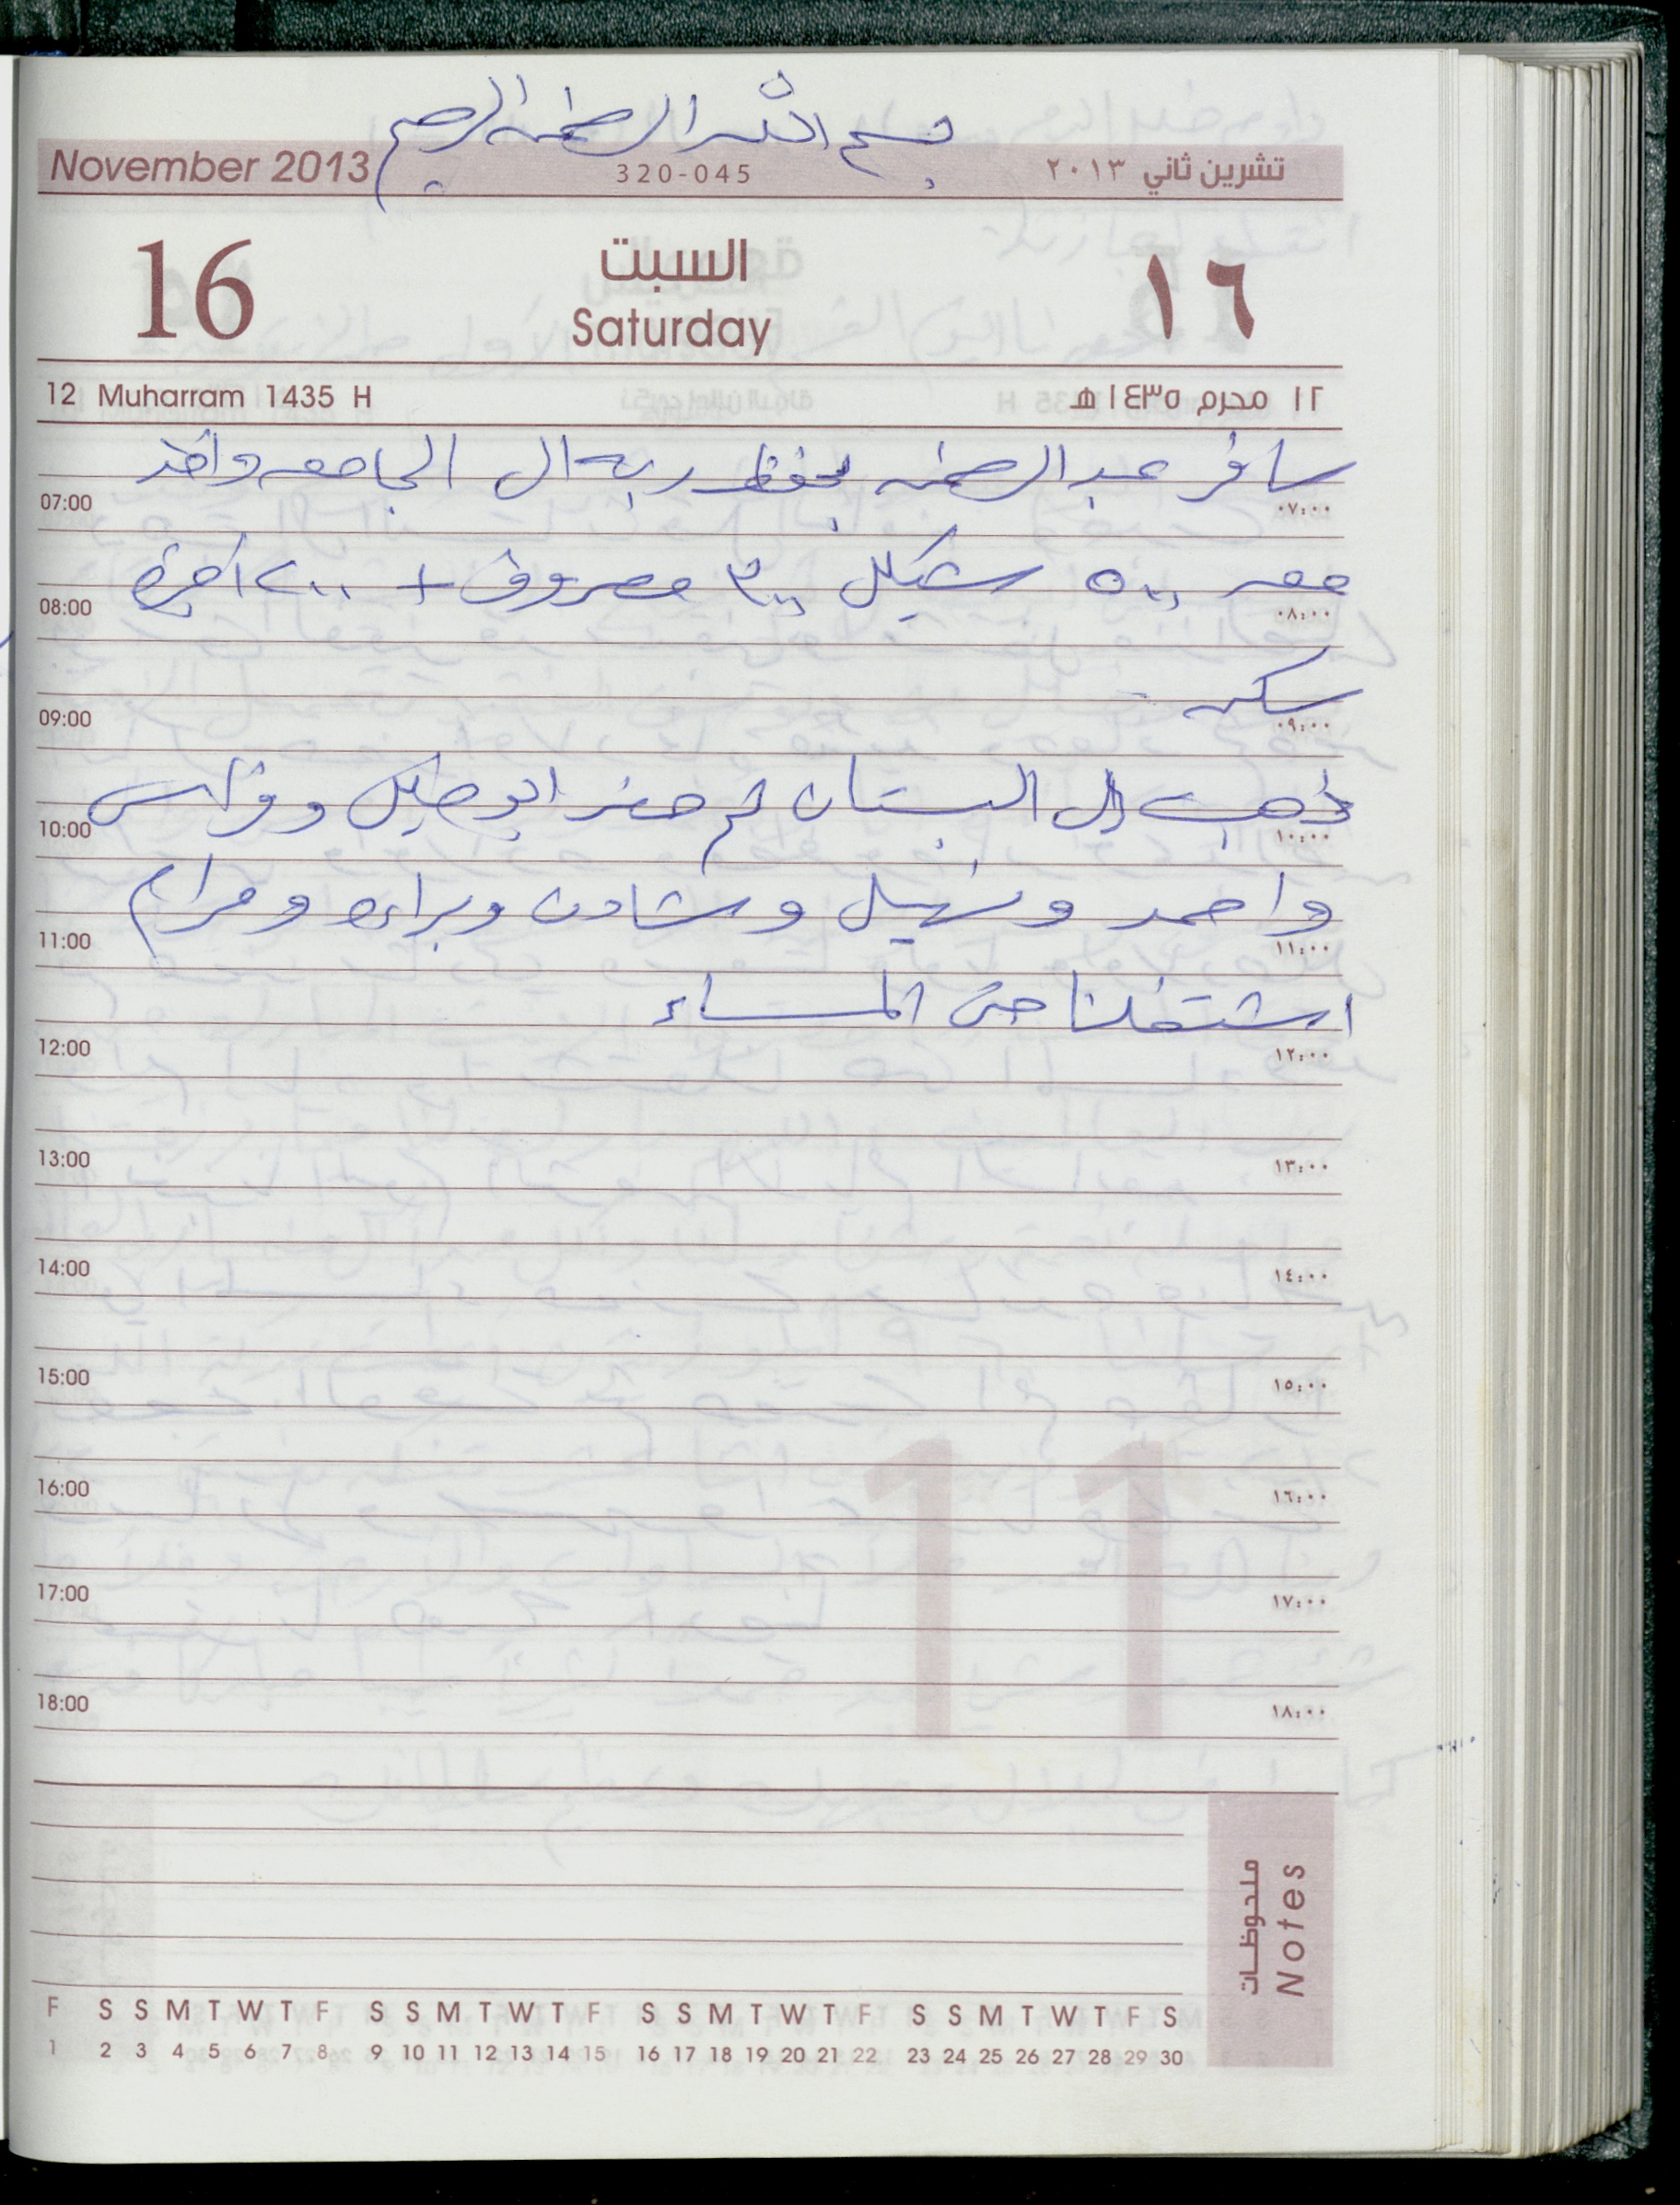 بسم الله الرحمن الرحيم
November 2013 320-045 تشرين ثاني ٢٠١٣
16 السبت ١٦
Saturday
12 Muharram 1435 H ١٢ محرم ١٤٣٥ هـ
سافر عبد الرحمن بحفظ ربه الى الجامعه واخذ
07:00 ٠٧:٠٠
معه ٥٠٠ شيكل ٣٠٠ مصروف + ٢٠٠ اجرة
08:00 ٠٨:٠٠
سكن
09:00 ٠٩:٠٠
ذهبت الى البستان ثم حضر ابو وفراس
10:00 ١٠:٠٠
واحمد ونبيل وشادن وبراءه ومرام
11:00 ١١:٠٠
اشتغلنا حتى المساء
12:00 ١٢:٠٠
13:00 ١٣:٠٠
14:00 ١٤:٠٠
15:00 ١٥:٠٠
16:00 ١٦:٠٠
17:00 ١٧:٠٠
18:00 ١٨:٠٠
11
ملحوظات
Notes
F S S M T W T F S S M T W T F S S M T W T F S S M T W T F S
1 2 3 4 5 6 7 8 9 10 11 12 13 14 15 16 17 18 19 20 21 22 23 24 25 26 27 28 29 30